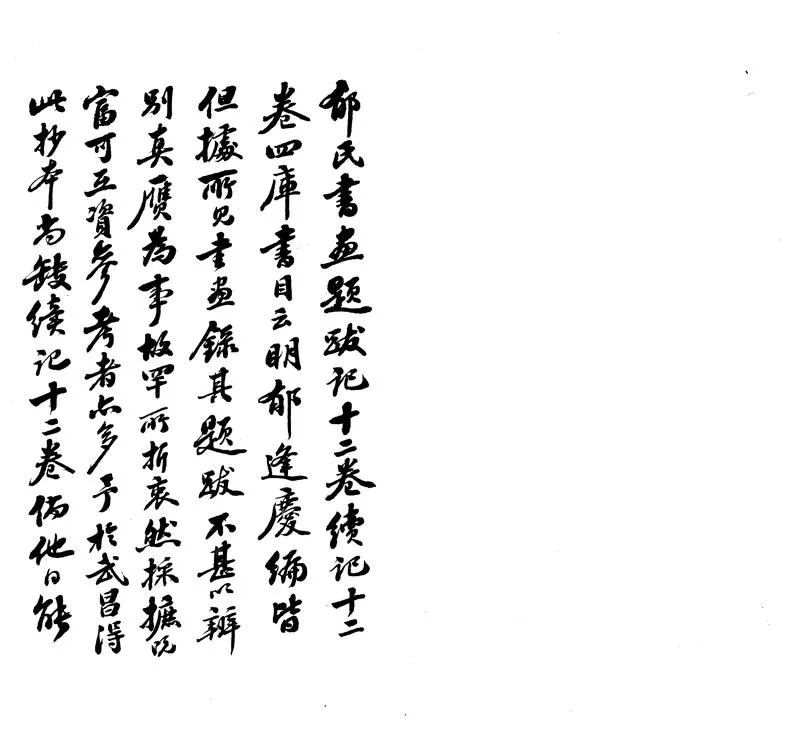 郁氏書画題跋记十二卷续记十二
卷四庫書目云明郁逢慶編皆
但據所见书画錄其题跋不甚以辨
别真贋為事故罕所折衷然採摭既
富可互資參考者亦多予於武昌得
此抄本尚缺续记十二卷倘他日能